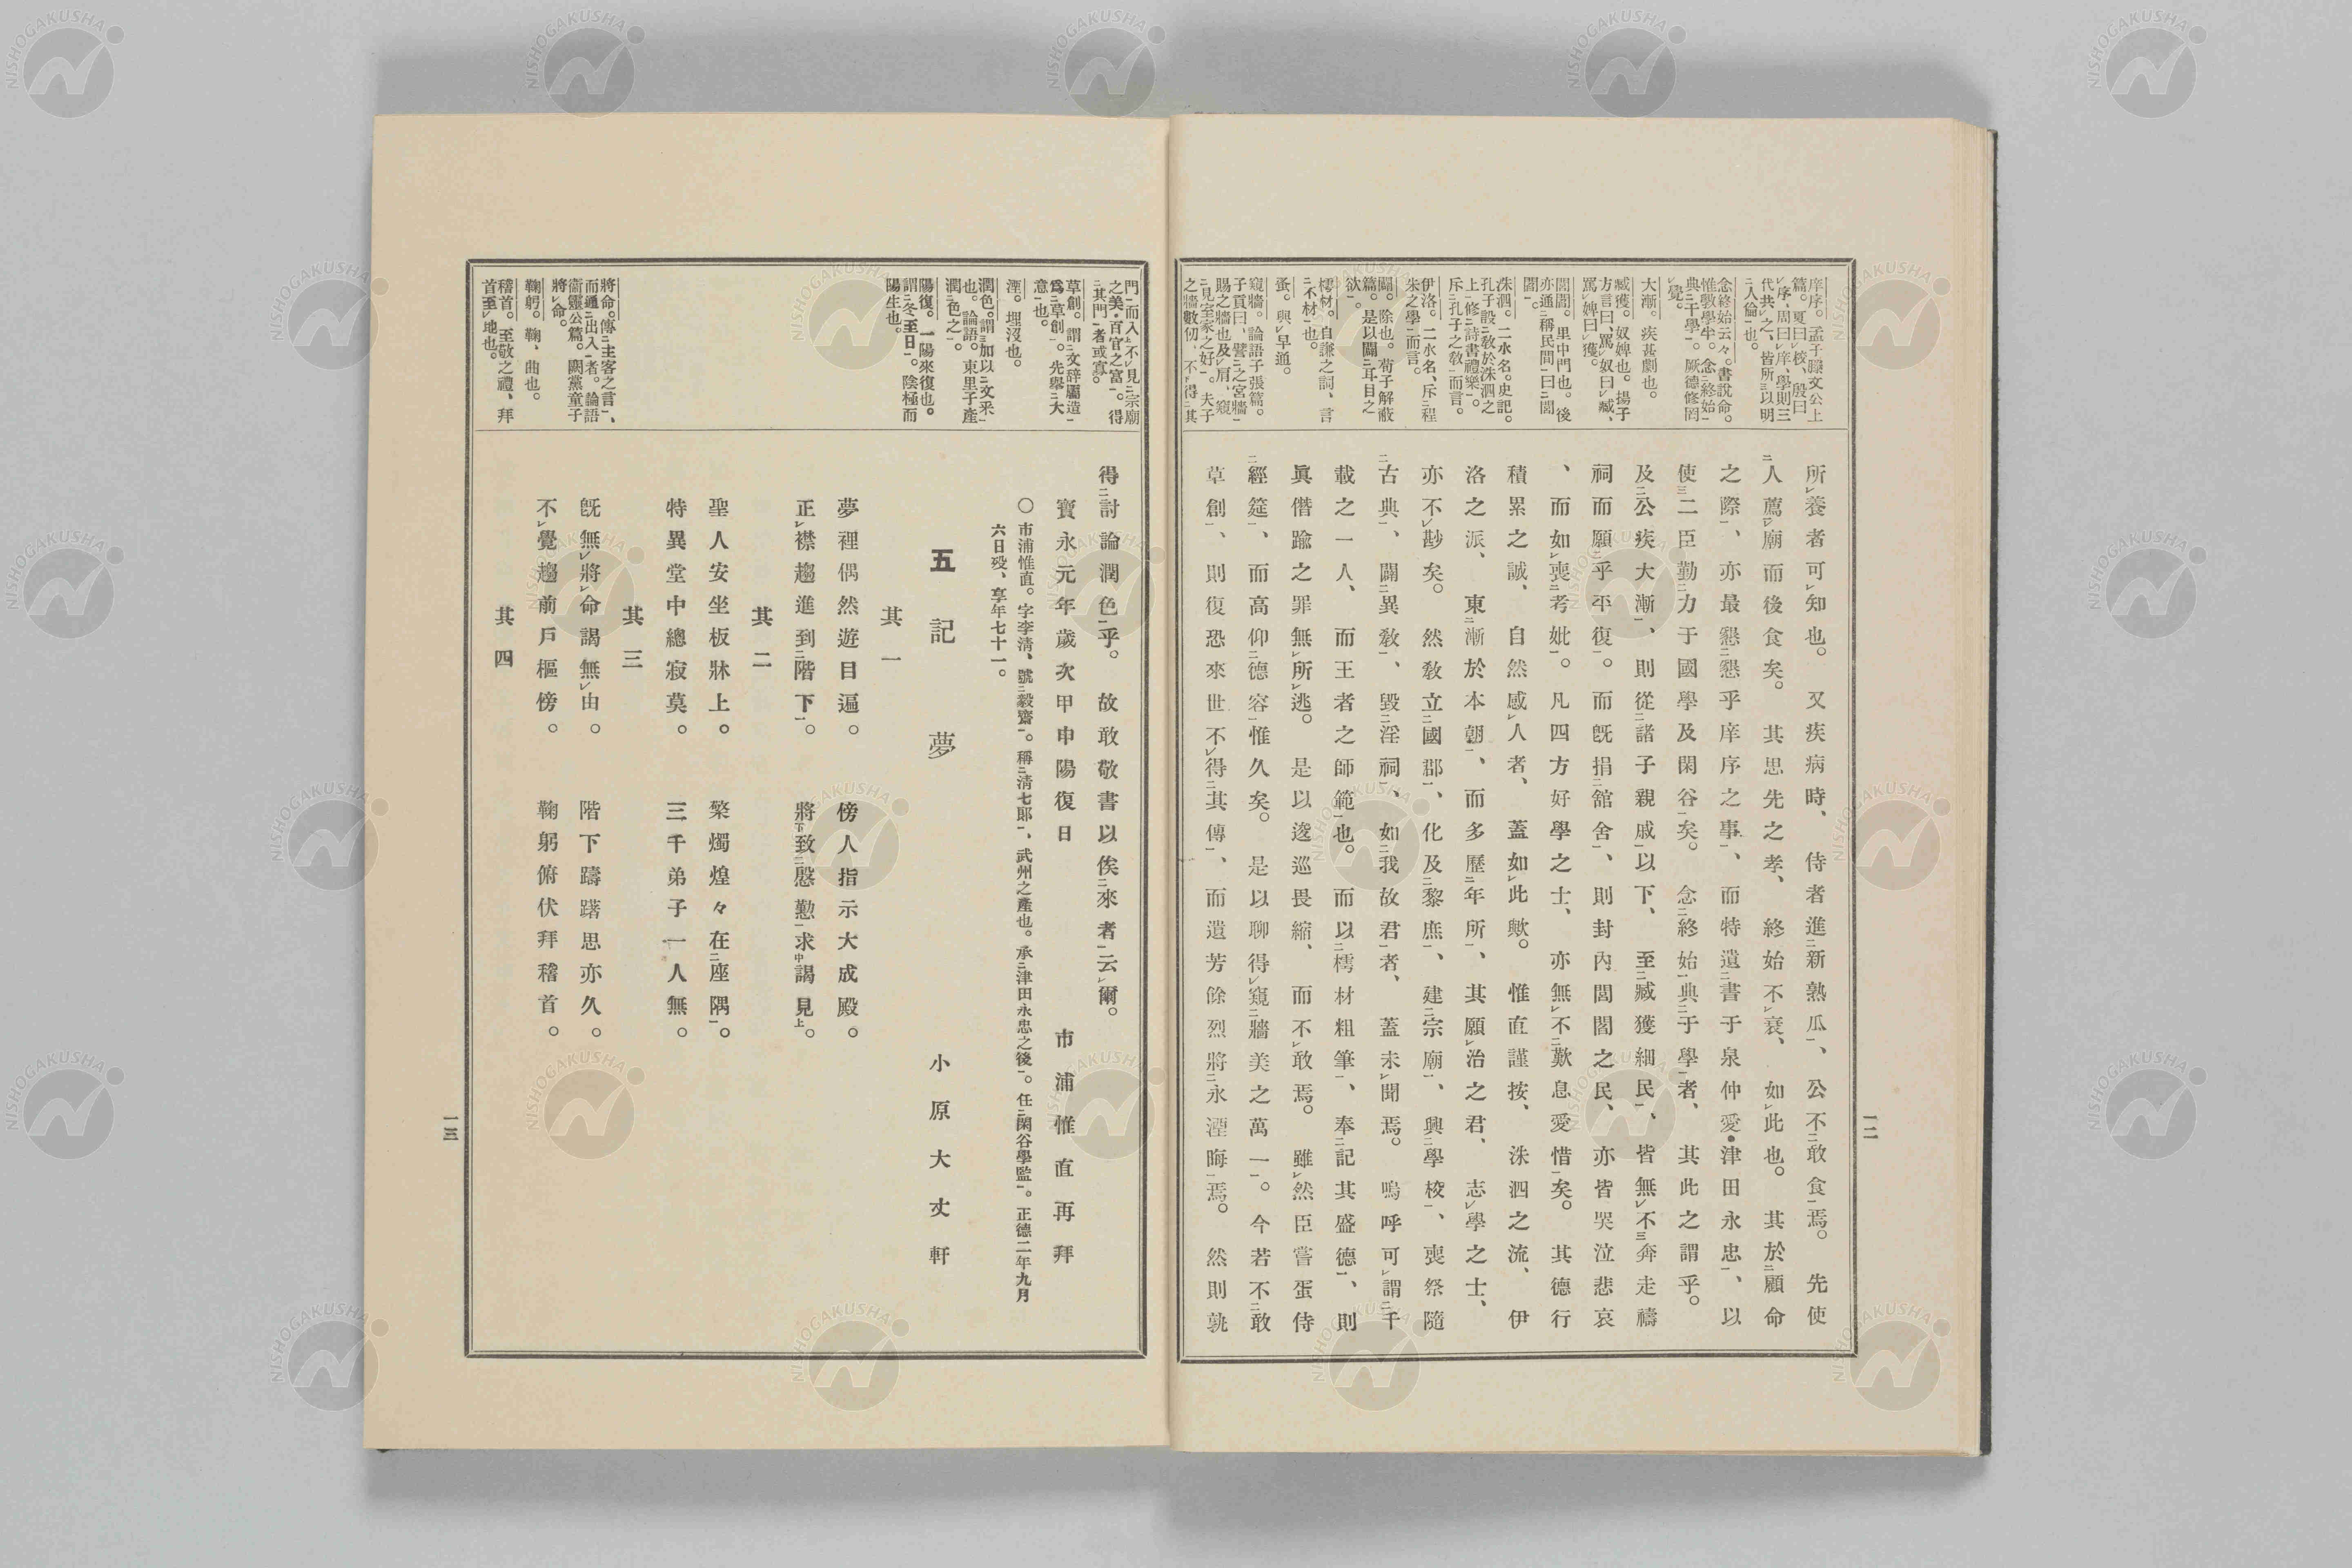 庠序。孟子滕文公上
篇。夏曰㆑校、殷曰
㆑序、周曰㆑庠、學則三
代共㆑之、皆所㆔以明
㆓人倫㆒也。
念終始云々。書說命。
惟斅學半。念㆓終始㆒
典㆓于學㆒。厥德修罔
㆑覺。
大漸。疾甚劇也。
臧獲。奴婢也。揚子
方言曰、罵㆑奴曰㆑臧、
罵㆑婢曰㆑獲。
閭閻。里中門也。後
亦通㆓稱民間㆒曰㆓閭
閻㆒。
洙泗。二水名。史記。
孔子設㆓敎於洙泗之
上㆒修㆓詩書禮樂㆒。
斥㆓孔子之敎㆒而言。
伊洛。二水名、斥㆓程
朱之學㆒而言。
闢。除也。荀子解蔽
篇。是以闢㆓耳目之
欲㆒。
樗材。自謙之詞、言
㆓不材㆒也。
蚤。與㆑早通。
窺牆。論語子張篇。
子貢曰、譬㆓之宮牆㆒
賜之牆也及㆑肩、窺
㆓見室家之好㆒。夫子
之牆數仞、不㆘得㆓其
所㆑養者可㆑知也。又疾病時、侍者進㆓新熟瓜㆒、公不㆓敢食㆒焉。先使
㆓人薦㆑廟而後食矣。其思先之孝、終始不㆑衰、如㆑此也。其於㆓顧命
之際㆒、亦最懇㆓懇乎庠序之事㆒、而特遺㆓書于泉仲愛•津田永忠㆒、以
使㆔二臣勤㆓力于國學及閑谷㆒矣。念㆓終始㆒典㆓于學㆒者、其此之謂乎。
及㆓公疾大漸㆒、則從㆓諸子親戚㆒以下、至㆓臧獲細民㆒、皆無㆑不㆔奔走禱
祠而願㆓乎平復㆒。而旣捐㆓舘舍㆒、則封內閭閻之民、亦皆哭泣悲哀
、而如㆑喪㆓考妣㆒。凡四方好學之士、亦無㆑不㆓歎息愛惜㆒矣。其德行
積累之誠、自然感㆑人者、蓋如㆑此歟。惟直謹按、洙泗之流、伊
洛之派、東㆓漸於本朝㆒、而多歷㆓年所㆒、其願㆑治之君、志㆑學之士、
亦不㆑尠矣。然敎立㆓國郡㆒、化及㆓黎庶㆒、建㆓宗廟㆒、興㆓學校㆒、喪祭隨
㆓古典㆒、闢㆓異敎㆒、毀㆓淫祠㆒、如㆓我故君㆒者、蓋未㆑聞焉。嗚呼可㆑謂㆓千
載之一人、而王者之師範㆒也。而以㆓樗材粗筆㆒、奉㆓記其盛德㆒、則
眞僭踰之罪無㆑所㆑逃。是以逡巡畏縮、而不㆓敢焉。雖㆑然臣嘗蛋侍
㆓經筵㆒、而高仰㆓德容㆒惟久矣。是以聊得㆑窺㆓牆美之萬一㆒。今若不㆓敢
草創㆒、則復恐來世不㆑得㆓其傳㆒、而遺芳餘烈將㆓永湮晦㆒焉。然則孰
一二
門㆒而入㆖不㆑見㆓宗廟
之美・百官之富㆒。得
㆓其門㆒者或寡。
草創。謂㆓文辞屬造㆒
爲㆓草創㆒。先擧㆓大
意㆒也。
湮。埋沒也。
潤色。謂㆘加以㆓文采㆒
也。論語。東里子產
潤㆓色之㆒。
陽復。一陽來復也。
謂㆓冬至日㆒。陰極而
陽生也。
將命。傳㆓主客之言㆒、
而通㆓出入㆒者。論語
衞靈公篇。闕黨童子
將㆑命。
鞠躬。鞠、曲也。
稽首。至敬之禮、拜
首至㆑地也。
得㆓討論潤色㆒乎。故敢敬書以俟㆓來者㆒云㆑爾。
寶永元年歲次甲申陽復日　市浦惟直再拜
○市浦惟直。字季清、號㆓毅齋㆒。稱㆓淸七郞㆒、武州之產也。承㆓津田永忠之後㆒。任㆓閑谷學監㆒。正德二年九月
六日歿、享年七十一。
五　記夢　小原大丈軒
其一
夢裡偶然遊目遍。　傍人指示大成殿。
正㆑襟趨進到㆓階下㆒。　將㆘致㆓慇懃㆒求㆗謁見㆖。
其二
聖人安坐板牀上。　檠燭煌々在㆓座隅㆒。
特異堂中總寂莫。　三千弟子一人無。
其三
旣無㆑將㆑命謁無㆑由。　階下躊躇思亦久。
不㆑覺趨前戶樞傍。　鞠躬俯伏拜稽首。
其四
一三